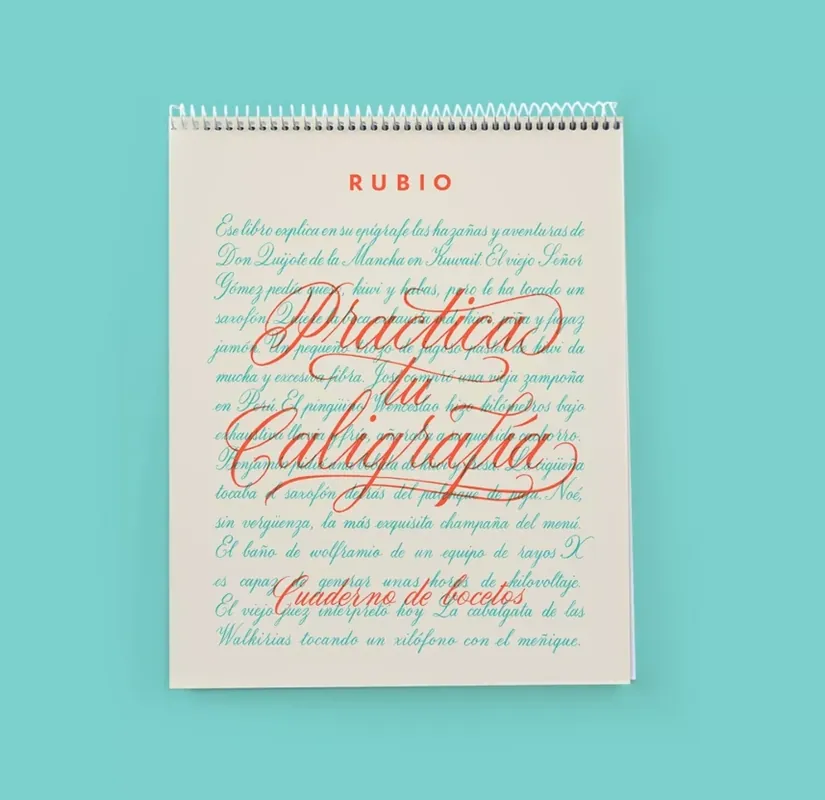 RUBIO
Ese libro explica en su epígrafe las hazañas y aventuras de
Don Quijote de la Mancha en Kuwait. El viejo Señor
Gómez pedía queso, kiwi y habas, pero le ha tocado un
saxofón. Quiere la boca exhausta vid, kiwi, piña y fugaz
Practica
jamón. Un pequeño trozo de jugoso pastel de kiwi da
tu
mucha y excesiva fibra. José compró una vieja zampoña
en Perú. El pingüino Wenceslao hizo kilómetros bajo
Caligrafía
exhaustiva lluvia y frío, añoraba a su querido cachorro.
Benjamín pidió una bebida de kiwi y fresa. La cigüeña
tocaba el saxofón detrás del palenque de paja. Noé,
sin vergüenza, la más exquisita champaña del menú.
El baño de wolframio de un equipo de rayos X
es capaz de generar unas horbs de kilovoltaje.
Cuaderno de bocetos
El viejo Güez interpretó hoy La cabalgata de las
Walkirias tocando un xilófono con el meñique.